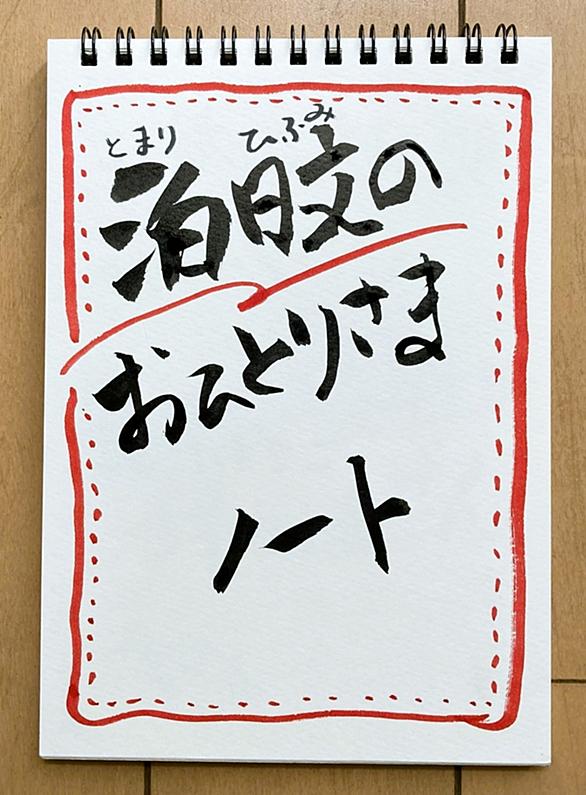 とまり ひふみ
泊日文の
おひとりさま
ノート